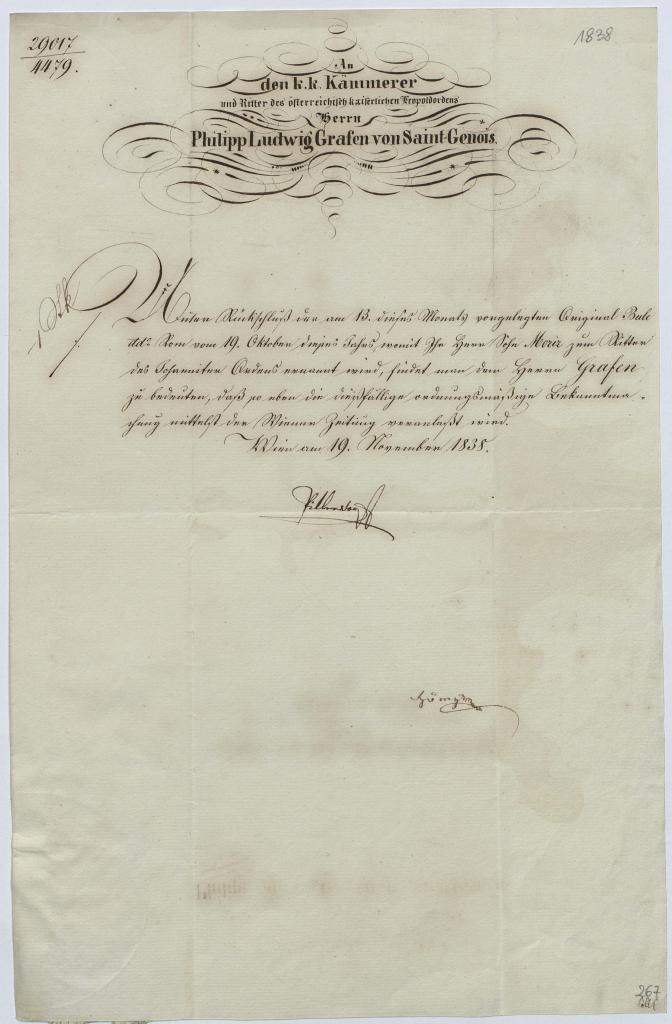 29017
4479.
1838
An
den k.k. Kämmerer
und Ritter des österreichisch kaiserlichen Leopoldordens
Herrn
Philipp Ludwig Grafen von Saint-Genois.
Unter Rückschluß der am 13. dieses Monats vorgelegten Original Bule
ddo Rom vom 19. Oktober dieses Jahrs, womit Ihr Herr Sohn Moriz zum Ritter
des Johanniter Ordens ernannt wird, findet man dem Herrn Grafen
zu bedeuten, daß so eben die dießfällige ordnungsmäßige Bekanntma-
chung mittelst der Wiener Zeitung veranlaßt wird.
Wien am 19. November 1838.
267